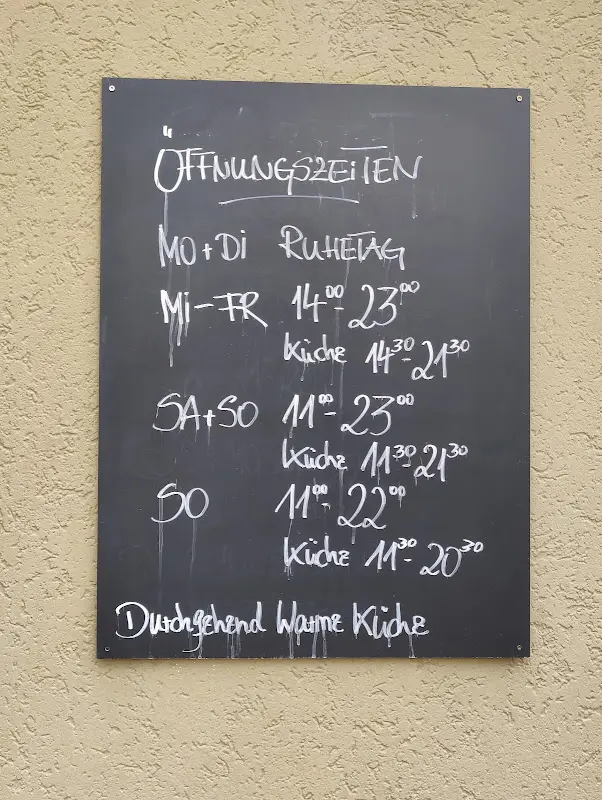 ÖFFNUNGSZEITEN
MO+DI RUHETAG
MI-FR 14⁰⁰-23⁰⁰
Küche 14³⁰-21³⁰
SA+SO 11⁰⁰-23⁰⁰
Küche 11³⁰-21³⁰
SO 11⁰⁰-22⁰⁰
Küche 11³⁰-20³⁰
Durchgehend Warme Küche